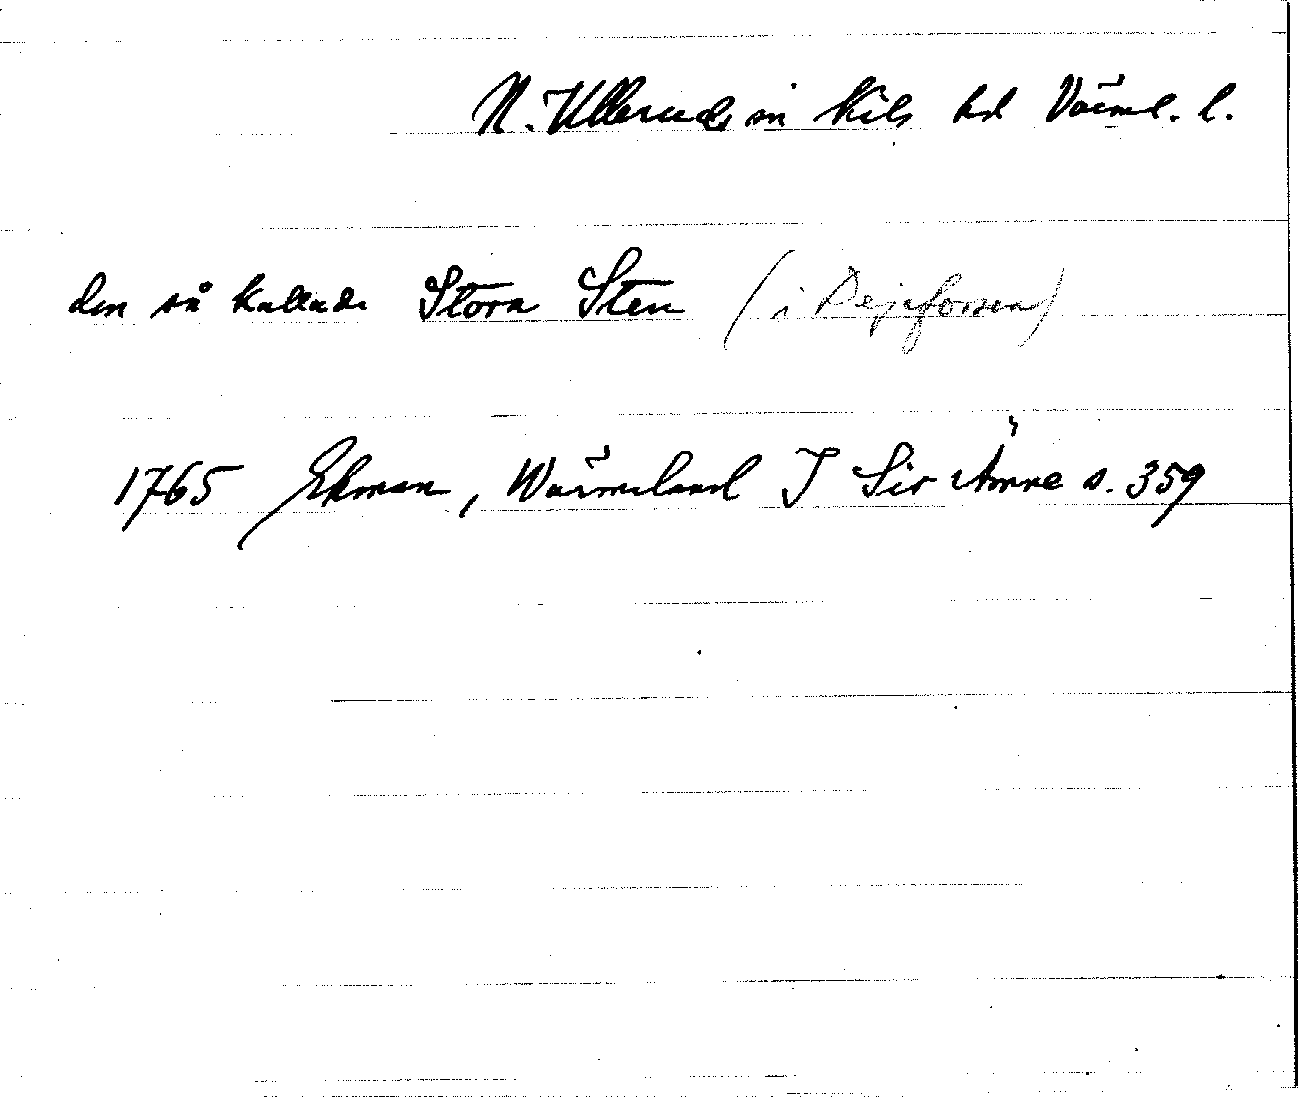 N. Ullerud sn Kils hd Värml. l.
den så kallade Stora Sten (i Dejeforsen)
1765 Ekman, Wärmeland I Sir Ämne s. 359